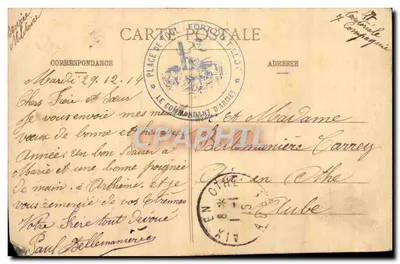 Service
Militaire
CARTE POSTALE
CORRESPONDANCE
ADRESSE
PLACE DE
LE COMMANDANT D'ARMES
Mardi 29.12.14
Chers Frère et Sœur
Je vous envoie mes mei
vœux de bonne et heureuse
Année. Un bon baiser à
Marie et une bonne poignée
de main à Arthème et je
vous remercie de vos Etrennes
Votre frère tout dévoué
Paul Bellemanière
et Madame
Bellemanière Carrey
Aix en Othe
Aube
AIX EN OTHE
8 1-1
15
Cartorum